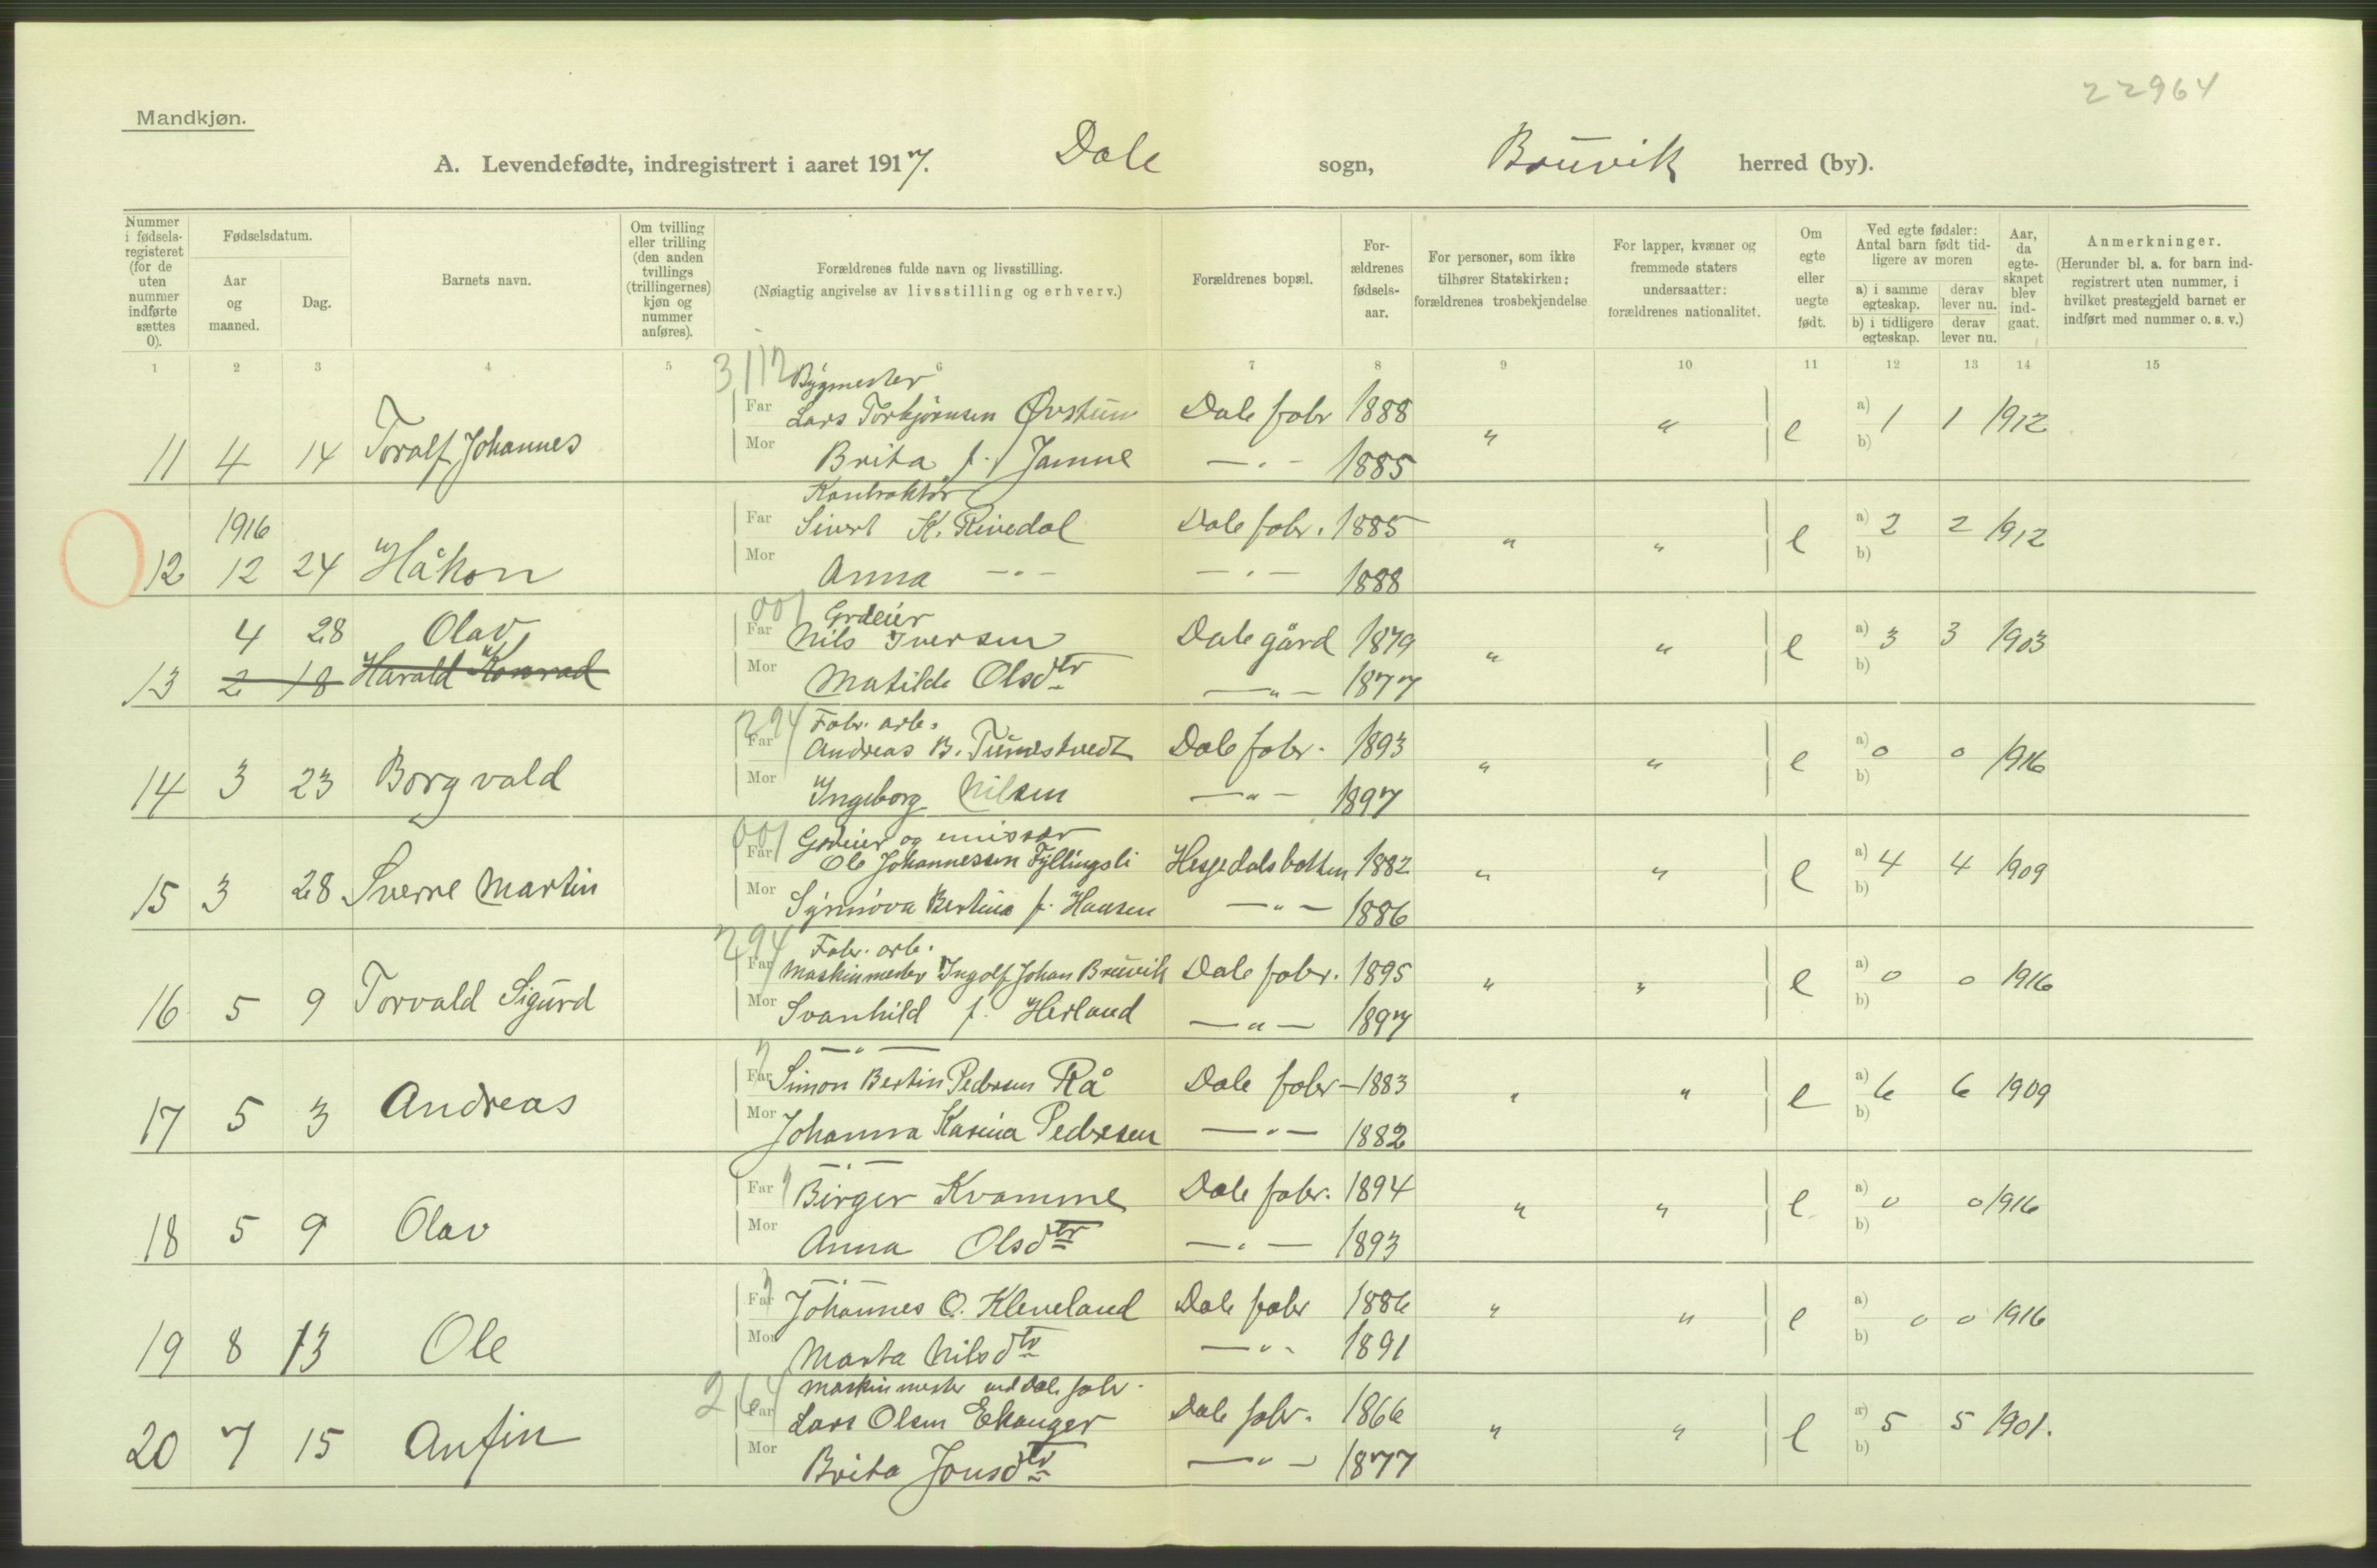 22964
Mandkjøn.
A. Levendefødte, indregistrert i aaret 1917. Dale sogn, Bruvik herred (by).
Nummer i fødsels-registeret (for de uten nummer indførte sættes 0).
Fødselsdatum.
Aar og maaned.
Dag.
Barnets navn.
Om tvilling eller trilling (den anden tvillings (trillingernes) kjøn og nummer anføres).
Forældrenes fulde navn og livsstilling.
(Nøiagtig angivelse av livsstilling og erhverv.)
Forældrenes bopæl.
For-ældrenes fødsels-aar.
For personer, som ikke tilhører Statskirken: forældrenes trosbekjendelse
For lapper, kvæner og fremmede staters undersaatter: forældrenes nationalitet.
Om egte eller uegte født.
Ved egte fødsler: Antal barn født tid-ligere av moren
a) i samme egteskap. derav lever nu.
b) i tidligere egteskap. derav lever nu.
Aar, da egte-skapet blev ind-gaat.
Anmerkninger.
(Herunder bl. a. for barn ind-registrert uten nummer, i hvilket prestegjeld barnet er indført med nummer o. s. v.)
1 2 3 4 5 6 7 8 9 10 11 12 13 14 15
Bygmester
Far Lars Torbjørnsen Øvstun Dale fabr 1888
11 4 14 Toralf Johannes " " e a) b) 1 1 1912
Mor Brita f. Jamne —"— 1885
Kontraktør
1916 Far Sivert K. Reivedal Dale fabr. 1885
12 12 24 Håkon " " e a) 2 b) 2 1912
Mor Anna —"— —"— 1888
001 Grdeier
4 28 Olav Far Nils Iversen Dale gård 1879
13 2 18 Harald Konrad " " e a) 3 b) 3 1903
Mor Matilde Olsdtr —"— 1877
294 Fabr. arb.
Far Andreas B. Tunestvedt Dale fabr. 1893
14 3 23 Borgvald " " e a) 0 b) 0 1916
Mor Ingeborg Nilsen —"— 1897
001 Grdeier og emissær
Far Ole Johannessen Fyllingsli Hesjedalsbotten 1882
15 3 28 Sverre Martin " " e a) 4 b) 4 1909
Mor Synnøva Bertina f. Hansen —"— 1886
294 Fabr. arb.
Far Maskinmester Ingolf Johan Bruvik Dale fabr. 1895
16 5 9 Torvald Sigurd " " e a) 0 b) 0 1916
Mor Svanhild f. Herland —"— 1897
—"—
Far Simon Bertin Pedersen Rå Dale fabr 1883
17 5 3 Andreas " " e a) 6 b) 6 1909
Mor Johanna Karina Pedersen —"— 1882
—"—
Far Birger Kvamme Dale fabr. 1894
18 5 9 Olav " " e a) 0 b) 0 1916
Mor Anna Olsdtr —"— 1893
—"—
Far Johannes O. Kleveland Dale fabr 1886
19 8 13 Ole " " e a) b) 0 0 1916
Mor Marta Nilsdtr —"— 1891
264 Maskinmester ved Dale fabr.
Far Lars Olsen Ekanger Dale fabr. 1866
20 7 15 Anfin " " e a) 5 b) 5 1901.
Mor Brita Jonsdtr —"— 1877